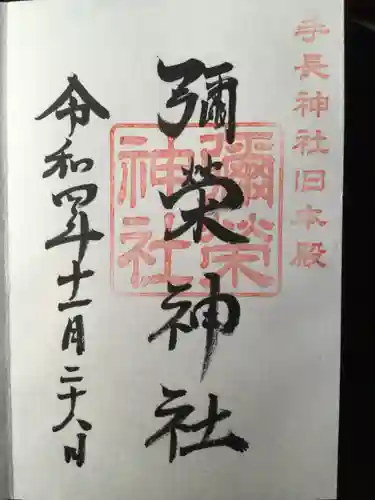 手長神社旧本殿
彌榮神社
彌榮神社
令和四年十一月二十八日